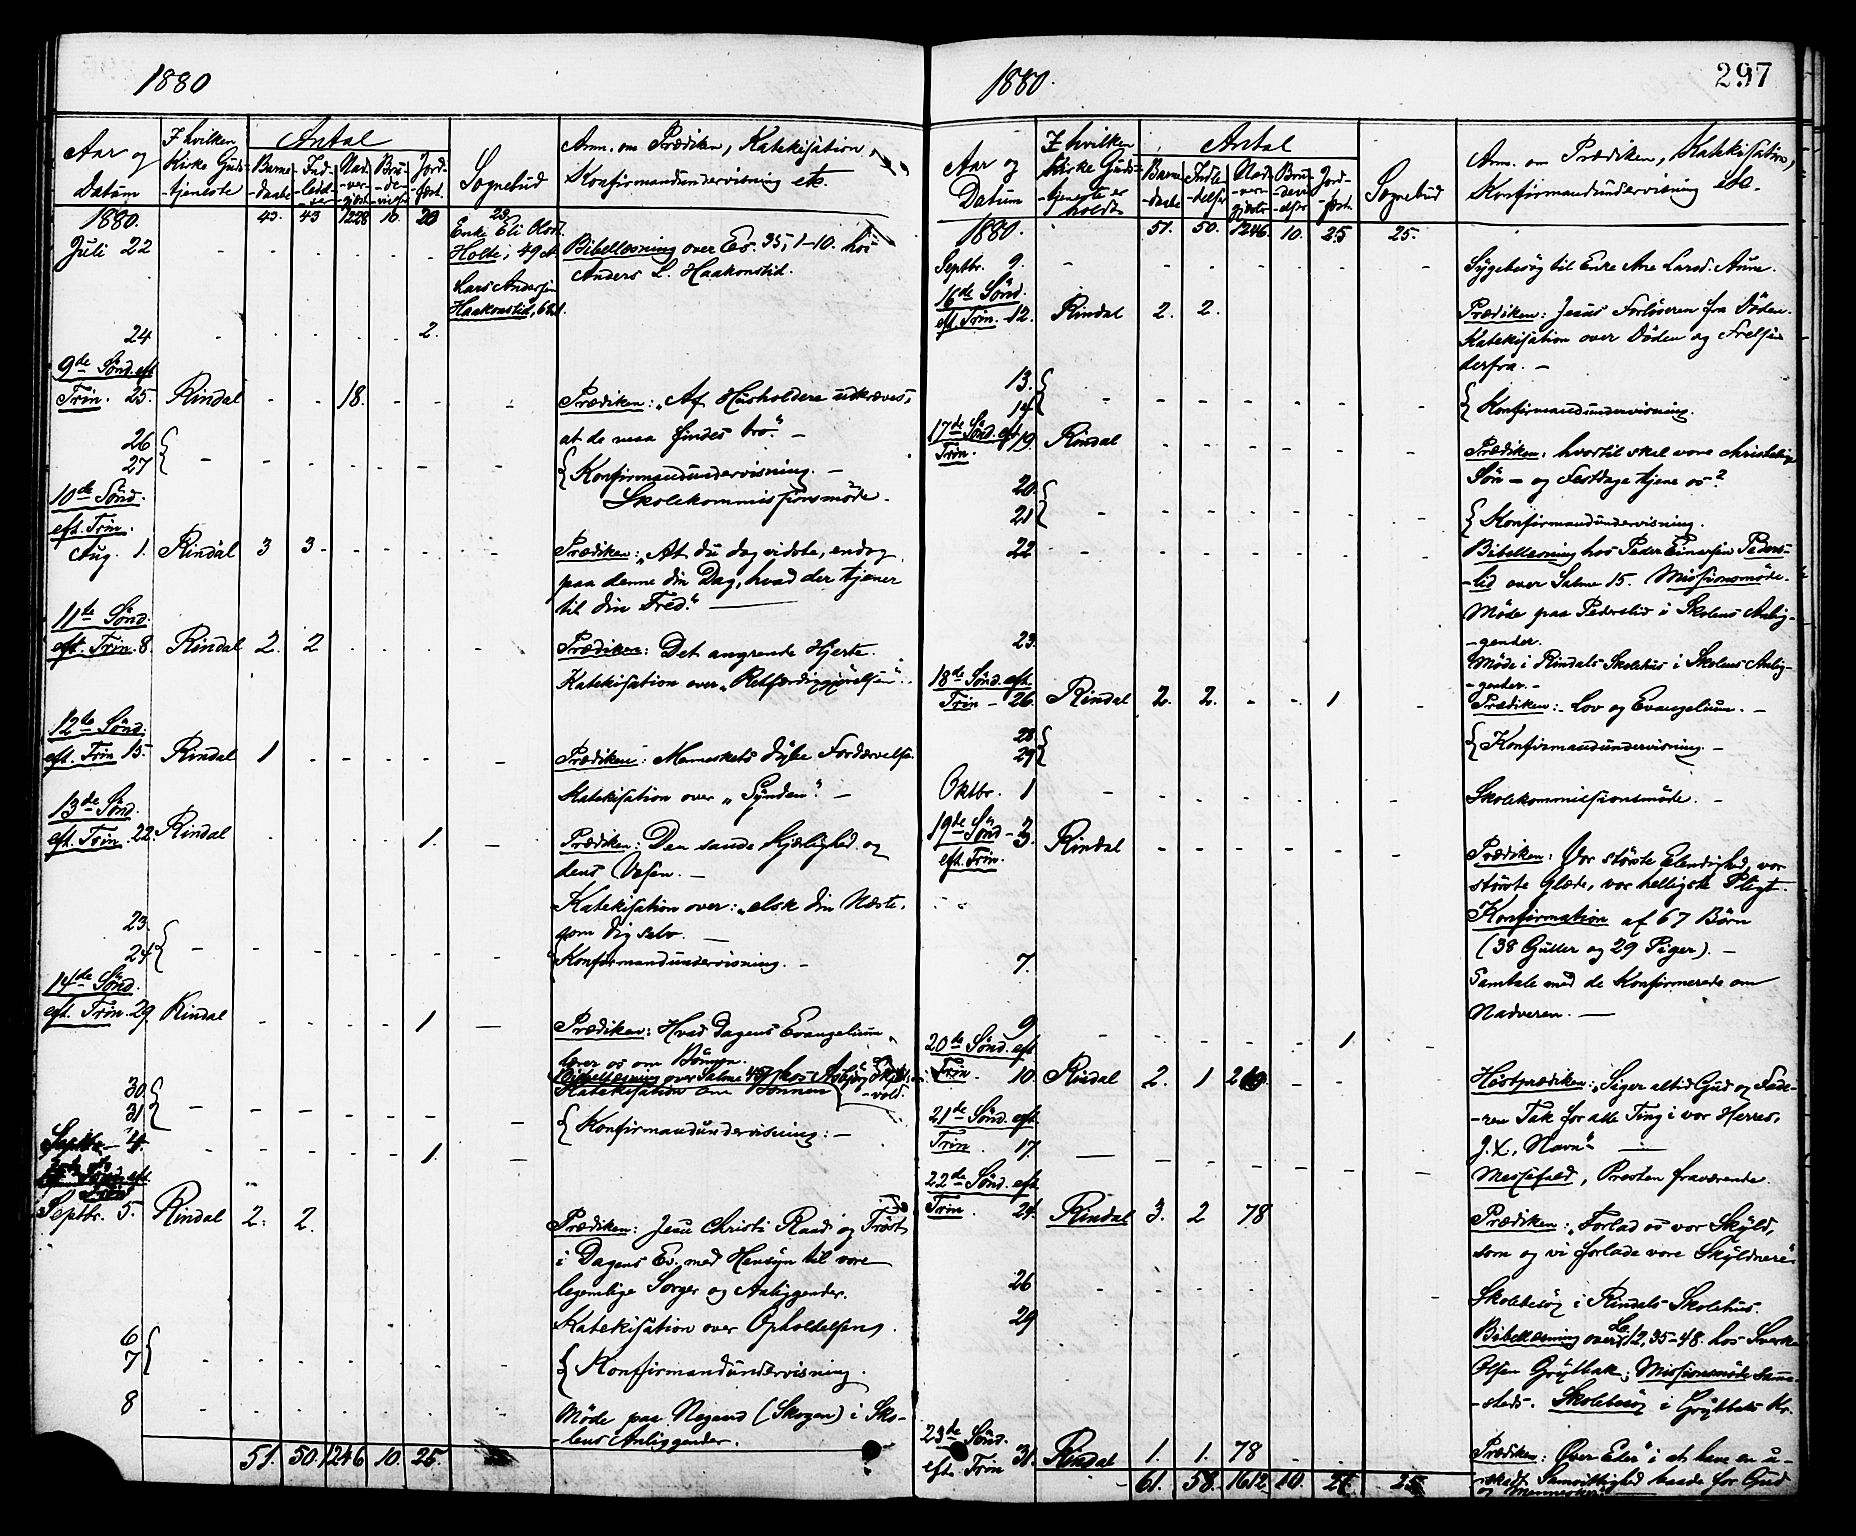 1880
Aar og Datum
I hvilken Kirke Guds-tjeneste
Antal
Barne-daabe
Ind-ledel-ser
Nad-ver-gjæster
Bru-de-vielser
Jord-fæst.
Sognebud
Anm. om Prædiken, Katekisation, Konfirmandundervisning etc.
1880. 43. 43 1228 10. 20 23.
Juli 22
Enke Eli Olsd.
Holte, 49 A.
Lars Andersen
Haakonstad,
Bibellesning over Es. 35, 1-10. hos
Anders L. Haakonstad.
24 2.
9de Sønd. eft
Trin. 25. Rindal 18. Prædiken: "Af Husholdere udkræves,
at de maa findes tro." -
26
27 Konfirmandundervisning. -
Skolekommissionsmøde.
10de Sønd.
eft. Trin.
Aug. 1. Rindal 3 3 Prædiken: "At du dog vidste, endog
paa denne din Dag, hvad der tjener
til din Fred."
11te Sønd.
eft. Trin. 8. Rindal 2. 2 Prædiken: Det angrende Hjerte.
Katekisation over "Retfærdiggjørelsen".
12te Sønd.
eft. Trin 15. Rindal 1 Prædiken: Menneskets dybe Fordærvelse.
Katekisation over "Synden" -
13de Sønd.
eft. Trin. 22. Rindal 1. Prædiken: Den sande Kjærlighed og
dens Væsen. -
Katekisation over: "elsk din Næste,
som dig selv.
23.
24 Konfirmandundervisning. -
14de Sønd.
eft. Trin. 29. Rindal 1 Prædiken: Hvad Dagens Evangelium
lærer os om Bønnen.
Bibellesning over Salme hos
Katekisation om Bønnen
30
31 Konfirmandundervisning: -
Septbr. 4. 1.
Septbr. 5. Rindal 2. 2. Prædiken: Jesu Christi Raad og Trøst
i Dagens Ev. med Hensyn til vore
legemlige Sorger og Anliggender.
Katekisation over Opholdelsen.
6
7 Konfirmandundervisning.
8 Møde paa Negard (Skogen) i Sko-
-lens Anliggender.
51. 50. 1246 10. 25.
1880.
297
Aar og Datum
I hvilken Kirke Guds-tjeneste er holdt
Antal
Barne-daabe
Indle-delser
Nad-ver-gjæster
Bru-devi-elser
Jord-fæst.
Sognebud
Anm. om Prædiken, Katekisation, Konfirmandundervisning etc.
1880. 51. 50. 1246. 10. 25 25.
Septbr. 9. Sygebesøg til Enke Ane Larsd. Aune.
16de Sønd.
eft. Trin. 12. Rindal 2. 2. Prædiken: Jesus Forløseren fra Døden.
Katekisation over Døden og Frelsen
derfra. -
13.
14 Konfirmandundervisning.
17de Sønd. eft
Trin. 19. Rindal Prædiken: hvortil skal vore christelige
Søn- og Festdage tjene os?
20.
21 Konfirmandundervisning.
22 Bibellesning hos Peder Einarsen Peders-
-lid over Salme 15. Missionsmøde.
Møde paa Pederslid i Skolens Anlig-
-gender.
23. Møde i Rindals Skolehus i Skolens Anlig-
-gender. -
18de Sønd. eft.
Trin - 26. Rindal 2. 2. 1 Prædiken: Lov og Evangelium. -
28
29 Konfirmandundervisning. -
Oktbr. 1 Skolekommissionsmøde. -
19de Sønd - 3.
eft. Trin. Rindal Prædiken: Vor største Elendighed, vor
største Glæde, vor helligste Pligt.
Konfirmation af 67 Børn
(38 Gutter og 29 Piger). -
7. Samtale med de Konfirmerede om
Nadveren. -
9 1
20de Sønd. eft
Trin. 10. Rindal 2. 1 Høstprædiken: "Siger altid Gud og Fade-
-ren Tak for alle Ting i vor Herres,
J. X., Navn" -
21de Sønd. eft.
Trin. 17. Messefald, Presten fraværende.
22de Sønd. eft
Trin. 24. Rindal 3. 2 78 Prædiken: "Forlad os vor Skyld,
som og vi forlade vore Skyldnere"
26 Skolebesøg i Rindals Skolehus.
29 Bibellesning over 12, 35-48. hos
Olsen Grytbak; Missionsmøde samme-
-steds. Skolebesøg i Grytbaks Kr.
23de Sønd.
eft. Trin 31. Rindal 1. 1. 78 Prædiken: Øver Eder i at have en u-
-skadt Samvittighed baade for Gud
og Mennesker.
61. 58. 1612. 10. 27. 25.